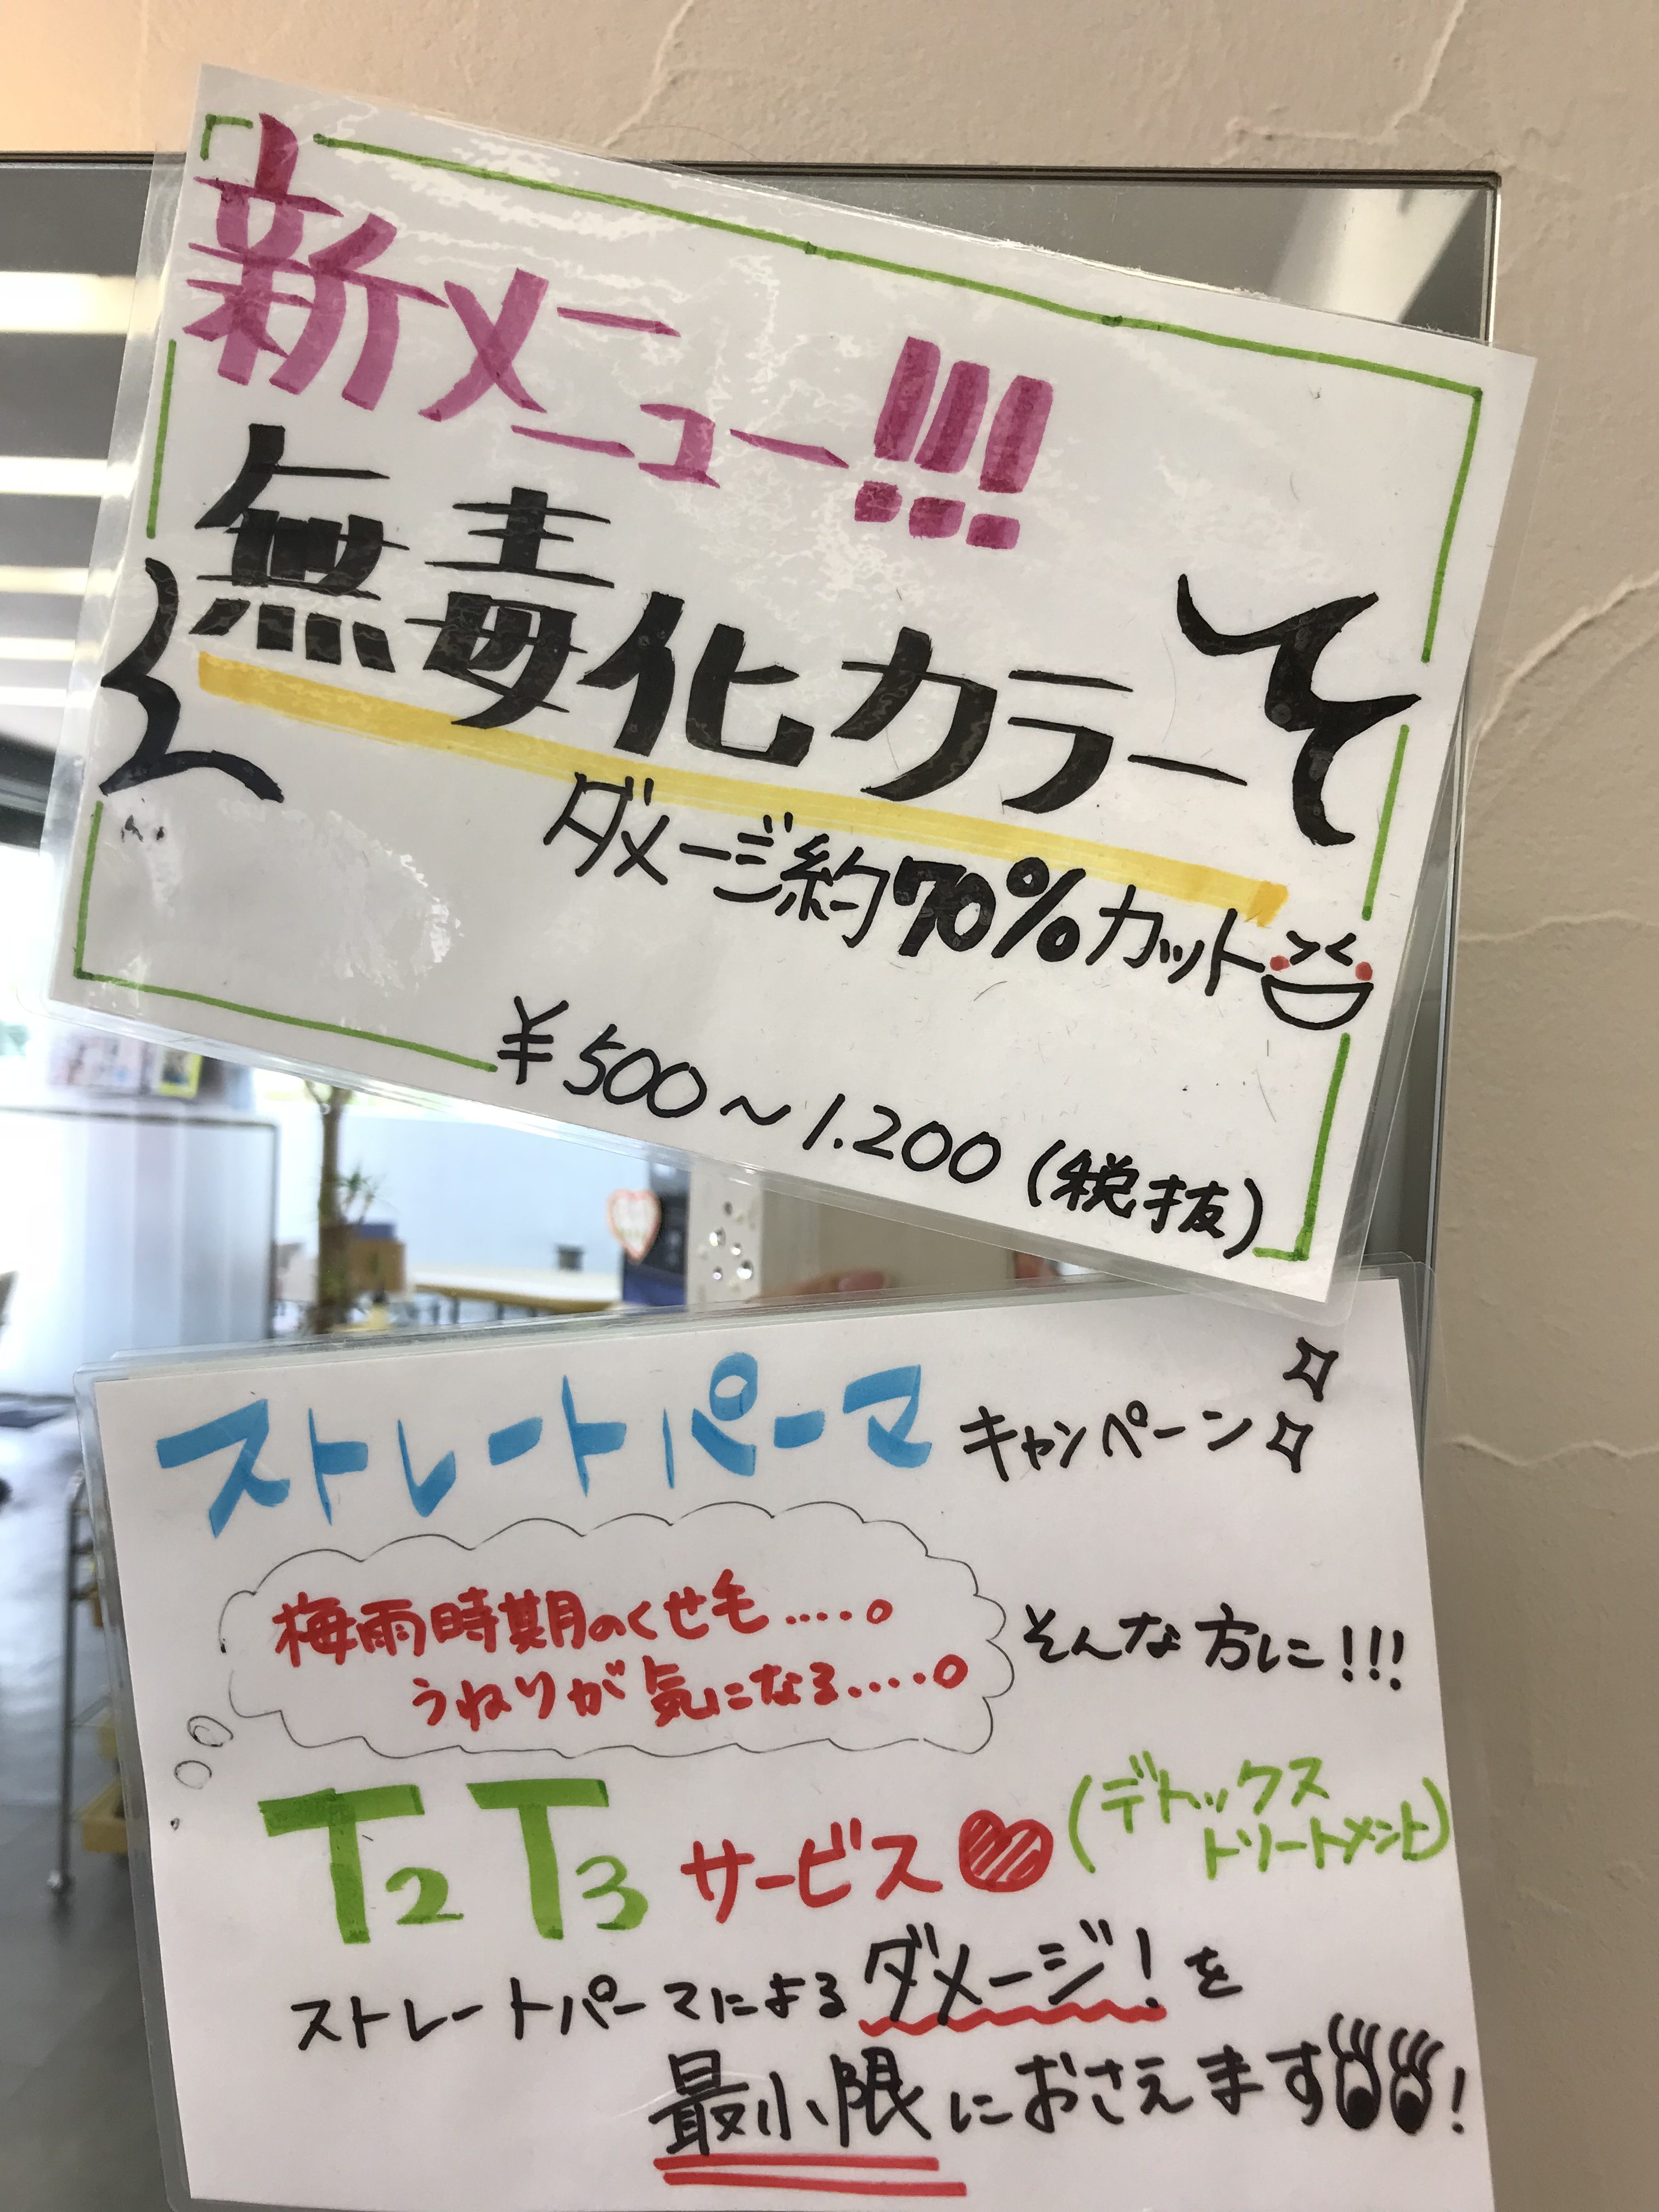 新メニュー!!!
無毒化カラー
ダメージ約70%カット
¥500～1.200(税抜)
ストレートパーマキャンペーン
梅雨時期のくせも....。
うねりが気になる....。
そんな方に!!!
T2T3サービス
(デトックス
トリートメント)
ストレートパーマによるダメージ!を
最小限におさえます!